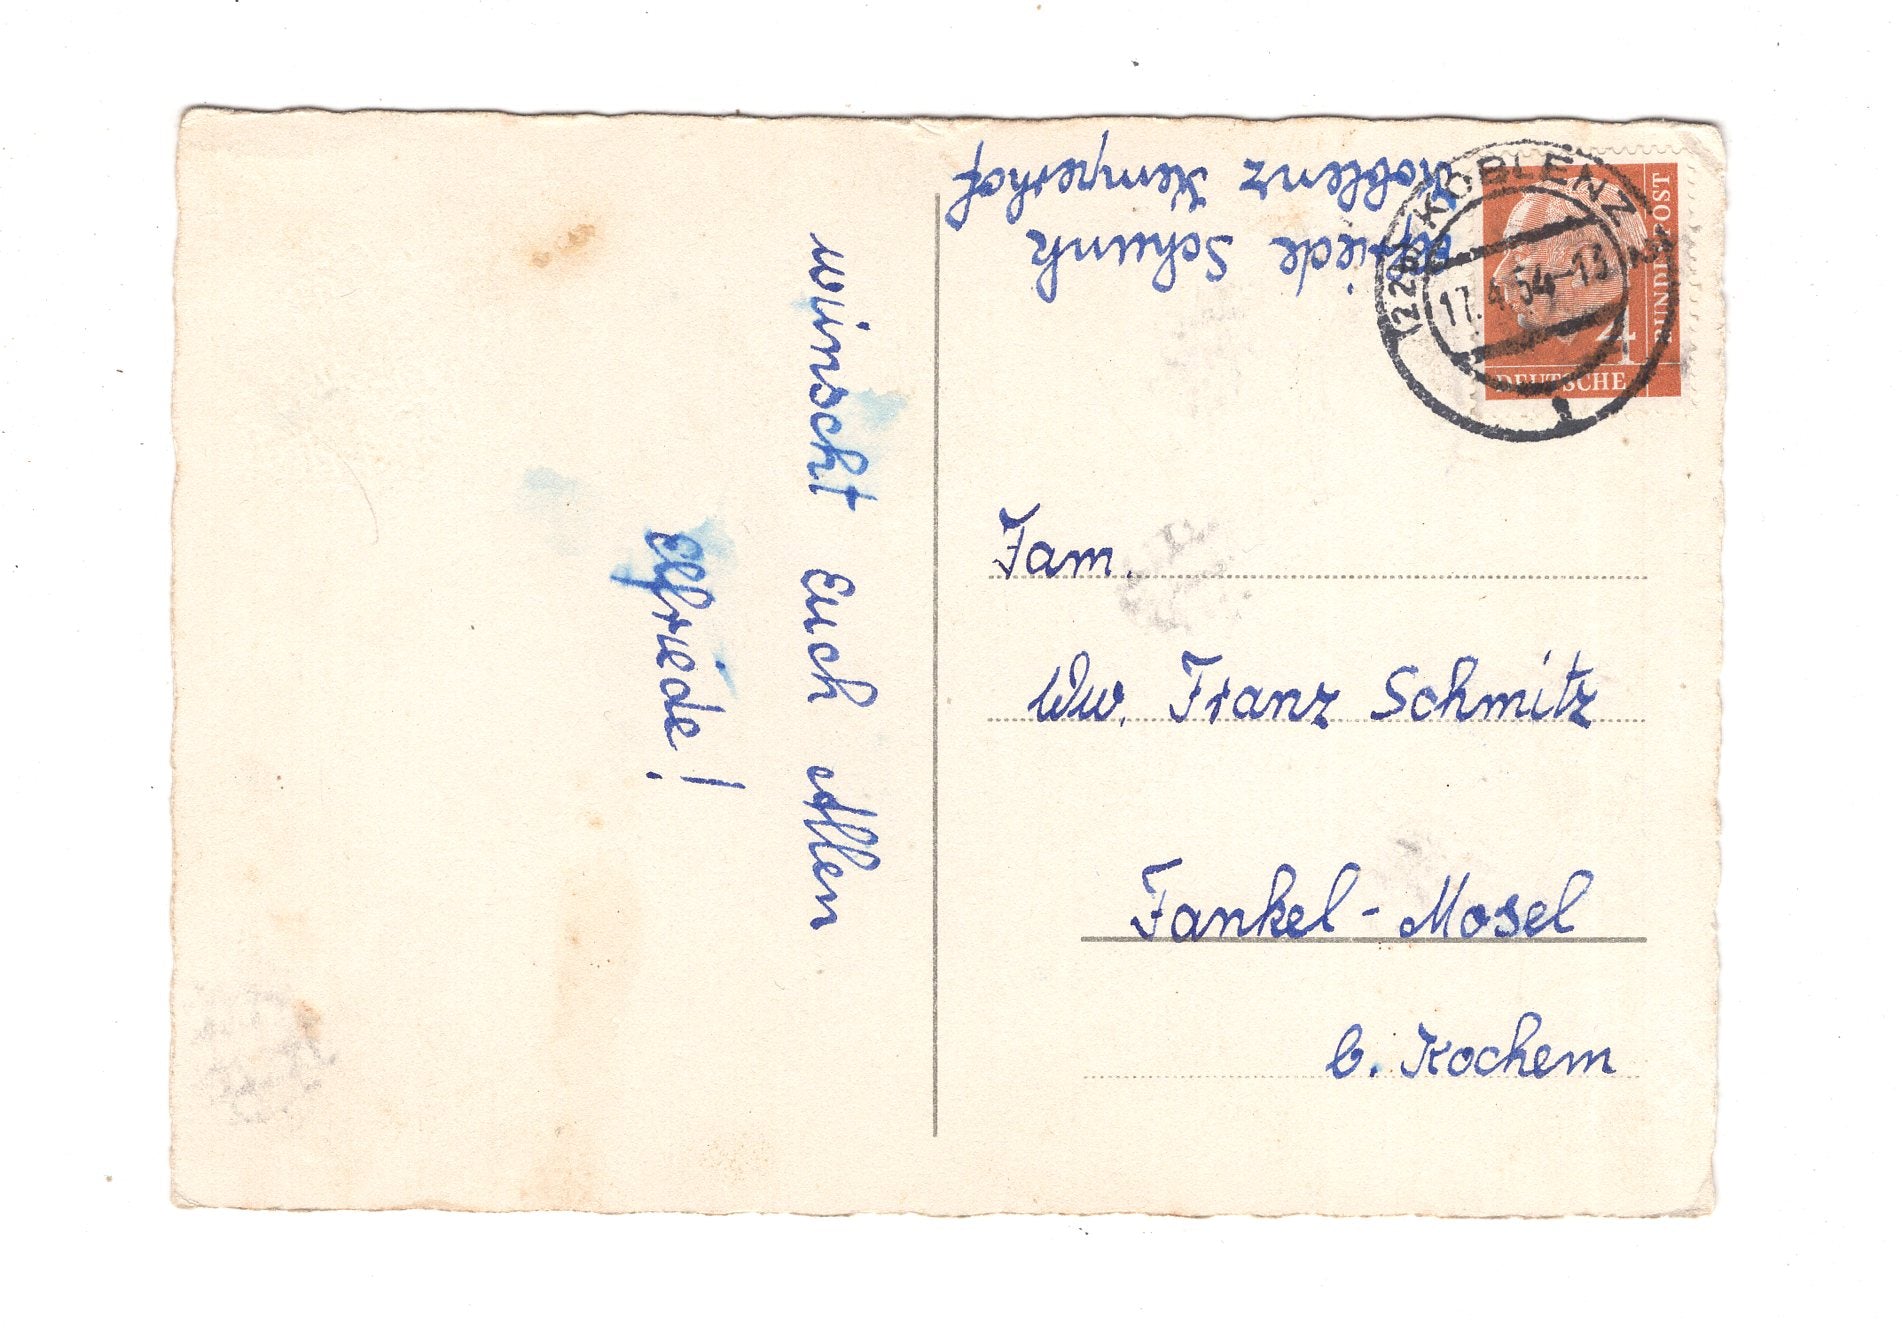 Elfriede Schunk
Koblenz Kemperhof
wünscht Euch Allen
Elfriede!
(22b) KOBLENZ
17.4.54-13
DEUTSCHE
BUNDESPOST
4
Fam.
Ww. Franz Schmitz
Fankel-Mosel
b. Kochem